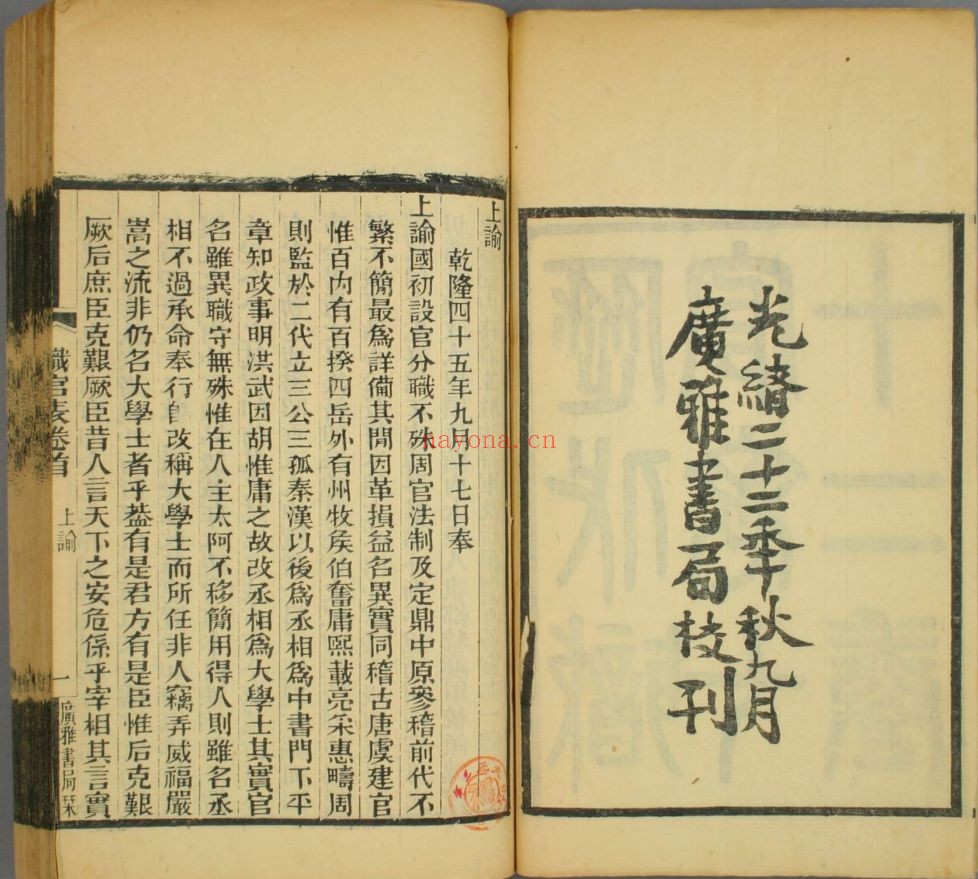 光緖二十二季秋九月
廣雅書局校刊
上諭
乾隆四十五年九月十七日奉
上諭國初設官分職不殊周官法制及定鼎中原參稽前代不
繁不簡最爲詳備其閒因革損益名異實同稽古唐虞建官
惟百内有百揆四岳外有州牧矦伯奮庸熙載亮采惠疇周
則監於二代立三公三孤秦漢以後爲丞相爲中書門下平
章知政事明洪武因胡惟庸之故改丞相爲大學士其實官
名雖異職守無殊惟在人主太阿不移簡用得人則雖名丞
相不過承命奉行卽改稱大學士而所任非人竊弄威福嚴
嵩之流非仍名大學士者乎葢有是君方有是臣惟后克艱
厥后庶臣克艱厥臣昔人言天下之安危係乎宰相其言實
職官表卷首
上諭
一
廣雅書局栞
nayona.cn